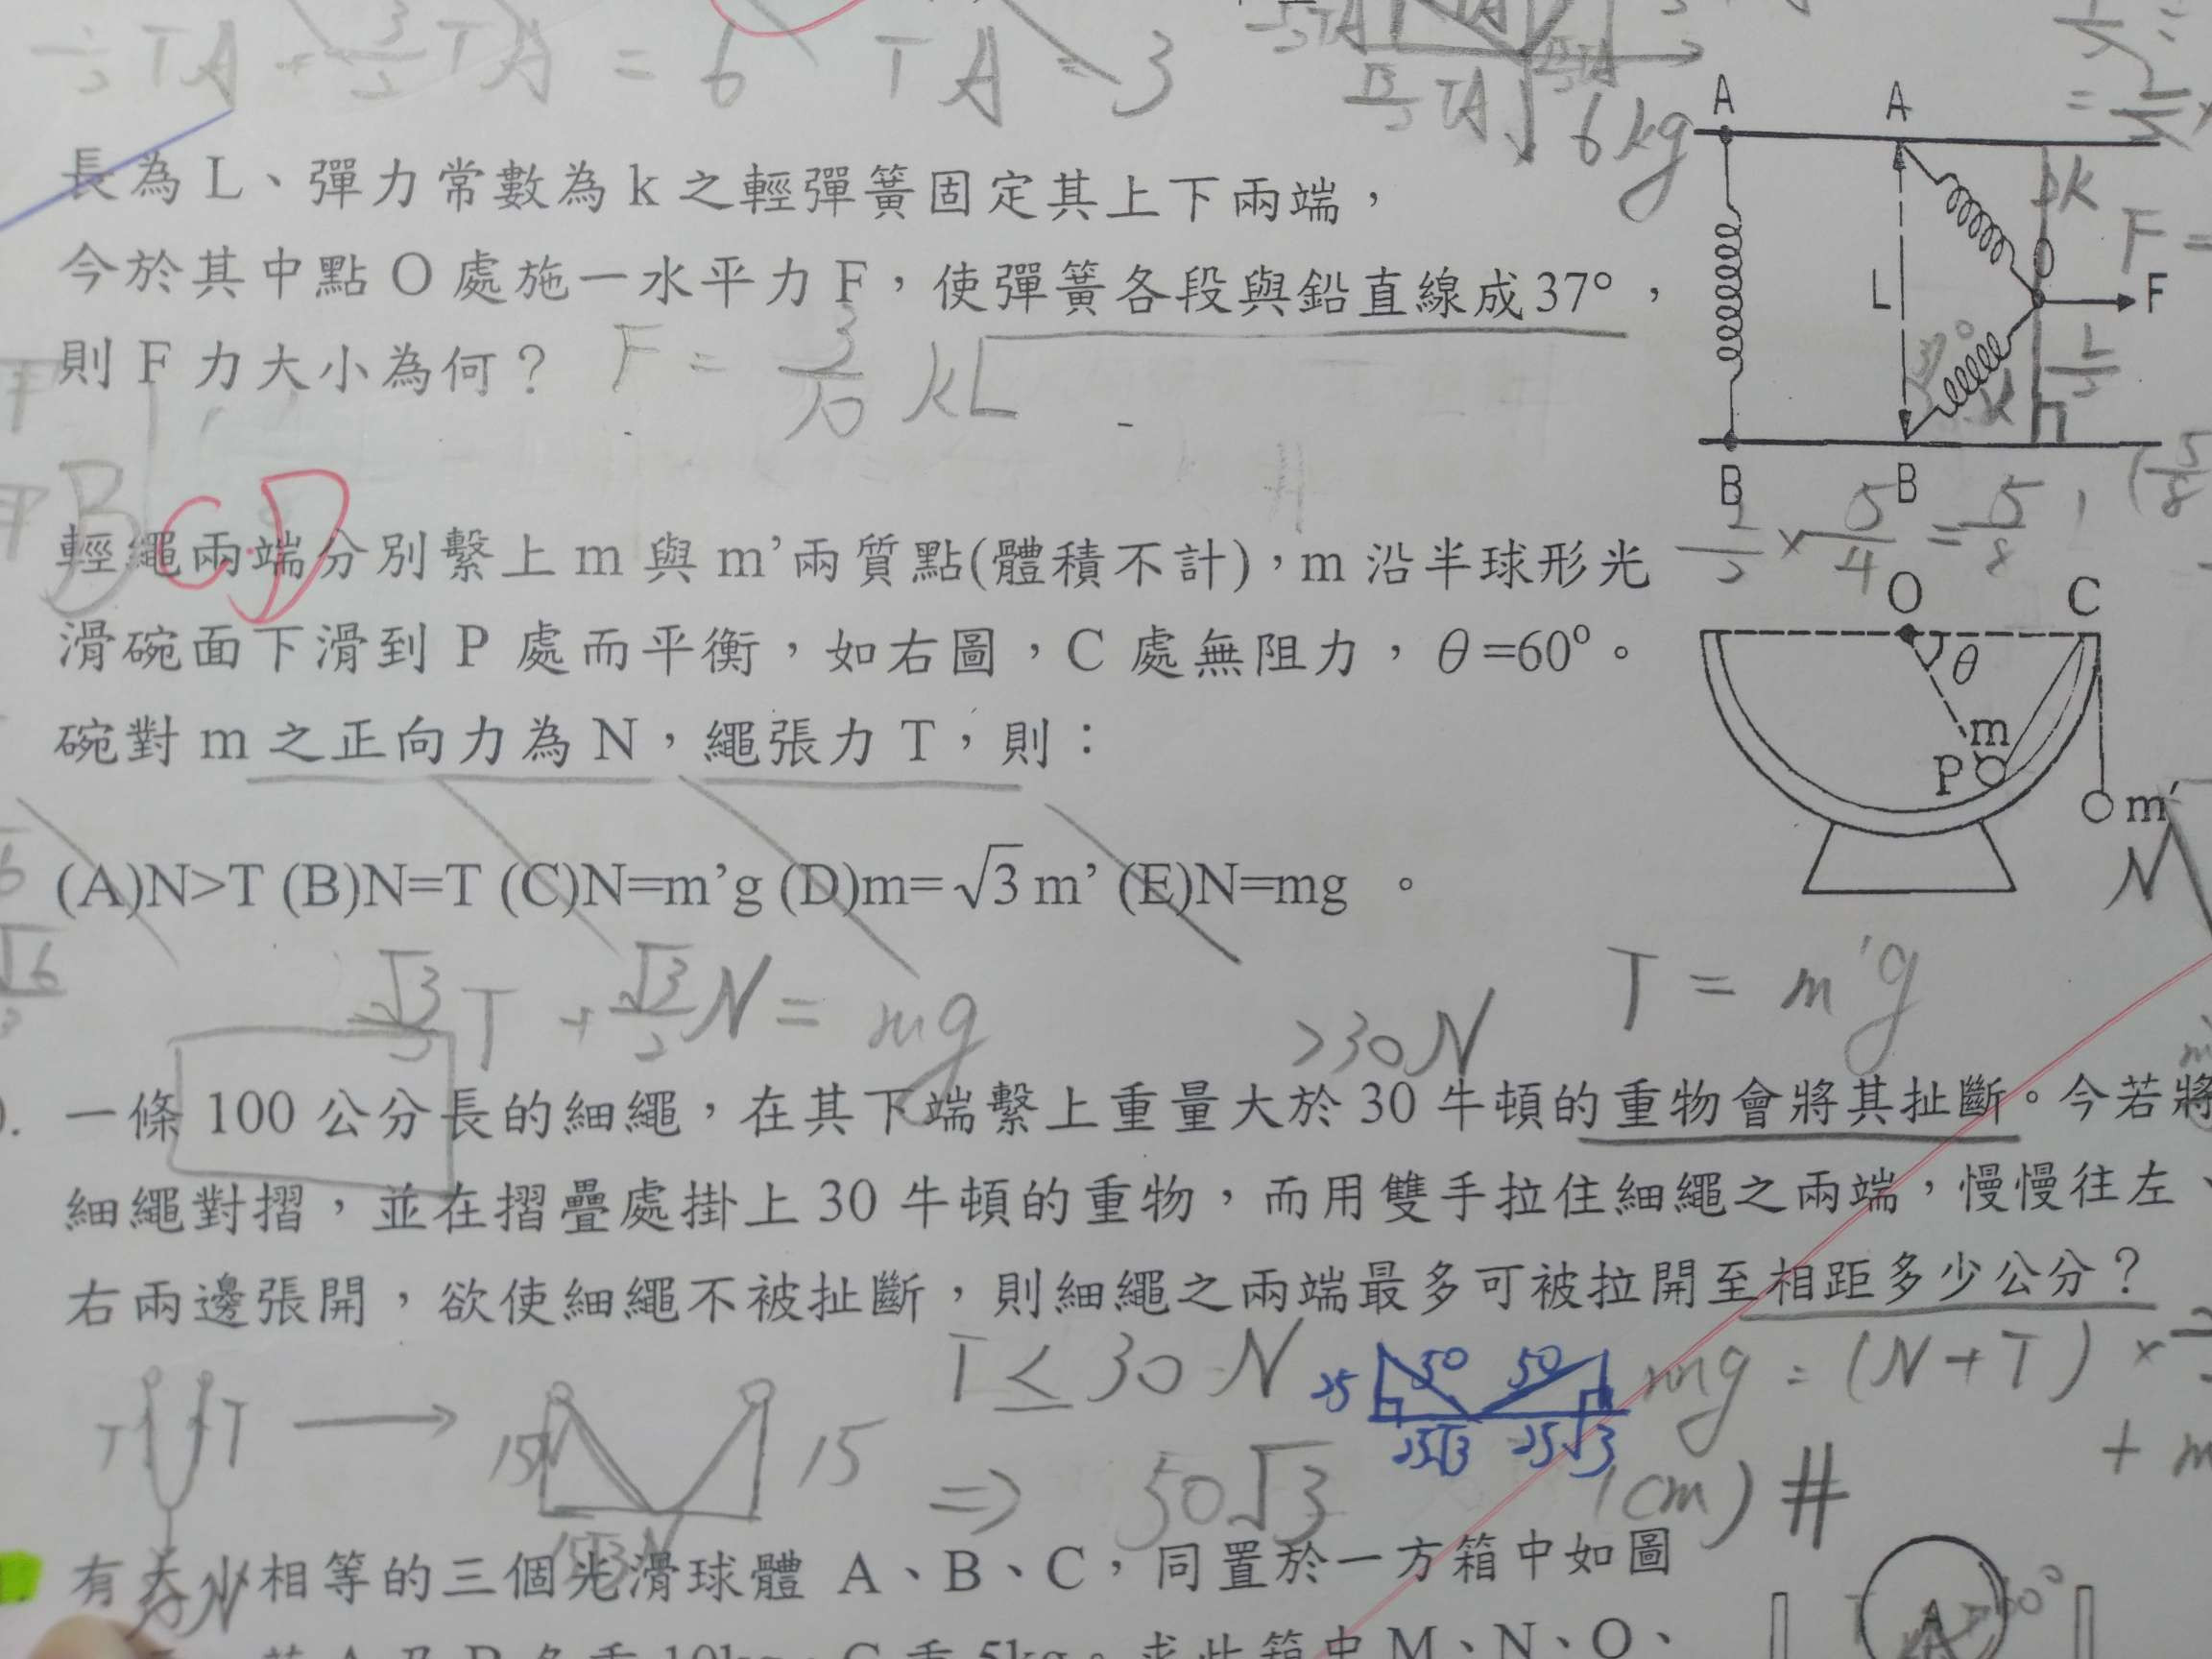 TA + 3/2 TA = 6 TA = 3
6kg
長為 L、彈力常數為 k 之輕彈簧固定其上下兩端,
今於其中點 O 處施一水平力 F,使彈簧各段與鉛直線成37°,
則 F 力大小為何? F = 3/10 kL
A A
L
F
B B
1/2 × 5/4 = 5/8
B C D
輕繩兩端分別繫上 m 與 m'兩質點(體積不計),m 沿半球形光
滑碗面下滑到 P 處而平衡,如右圖,C 處無阻力,θ=60°。
碗對 m 之正向力為 N,繩張力 T,則:
O C
θ
m
P
m'
N
(A)N>T (B)N=T (C)N=m'g (D)m=√3 m' (E)N=mg 。
√3/2 T + √3/2 N = mg
>30N
T = m'g
一條 100 公分長的細繩,在其下端繫上重量大於 30 牛頓的重物會將其扯斷。今若將
細繩對摺,並在摺疊處掛上 30 牛頓的重物,而用雙手拉住細繩之兩端,慢慢往左、
右兩邊張開,欲使細繩不被扯斷,則細繩之兩端最多可被拉開至相距多少公分?
T T
15 15
T ≤ 30 N
25 50 50
25√3 25√3
mg = (N+T) ×
⇒ 50√3 (cm) #
有大小相等的三個光滑球體 A、B、C,同置於一方箱中如圖
A